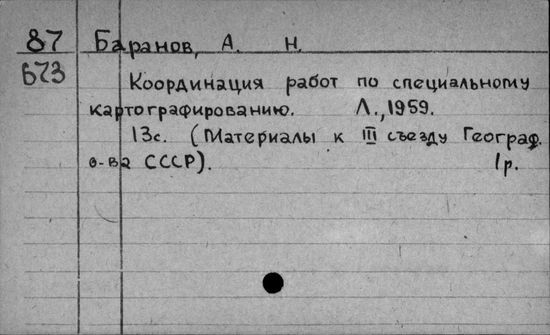 87 Баранов, А. Н.
673
Координация работ по специальному
картографированию. Л., 1959.
13с. (Материалы к III съезду Географ.
о-ва СССР). 1р.